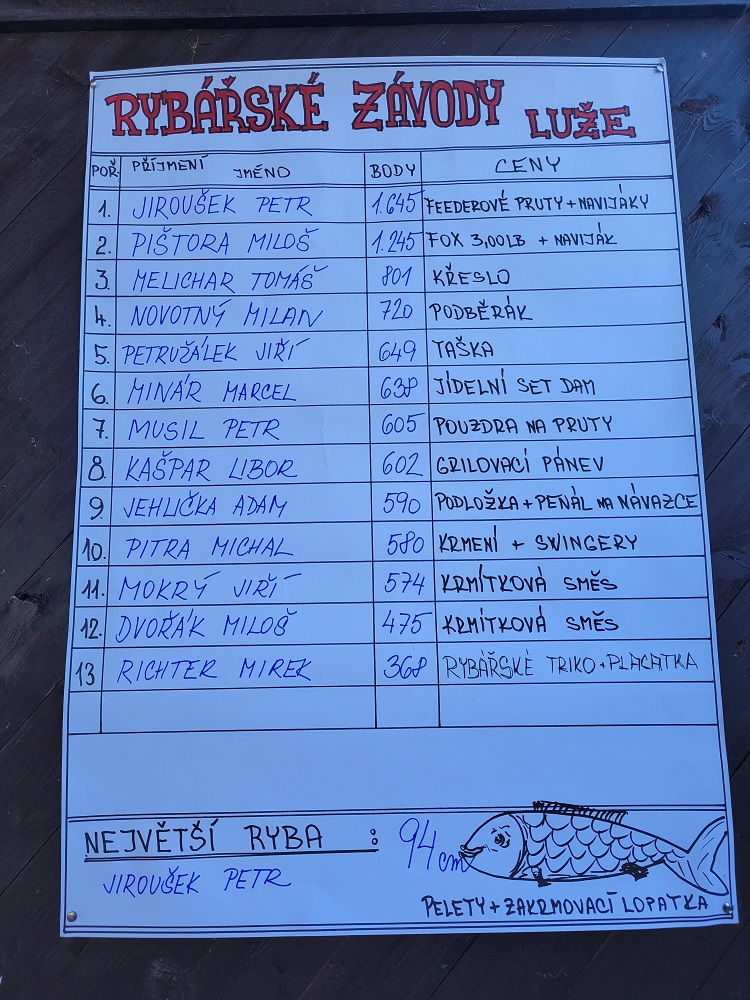 RYBÁŘSKÉ ZÁVODY LUŽE
POŘ. PŘÍJMENÍ JMÉNO BODY CENY
1. JIROUŠEK PETR 1.645 FEEDEROVÉ PRUTY + NAVIJÁKY
2. PIŠTORA MILOŠ 1.245 FOX 3,00LB + NAVIJÁK
3. MELICHAR TOMÁŠ 801 KŘESLO
4. NOVOTNÝ MILAN 720 PODBĚRÁK
5. PETRUŽÁLEK JIŘÍ 649 TAŠKA
6. MINÁR MARCEL 638 JÍDELNÍ SET DAM
7. MUSIL PETR 605 POUZDRA NA PRUTY
8. KAŠPAR LIBOR 602 GRILOVACÍ PÁNEV
9. JEHLIČKA ADAM 590 PODLOŽKA + PENÁL NA NÁVAZCE
10. PITRA MICHAL 580 KRMENÍ + SWINGERY
11. MOKRÝ JIŘÍ 574 KRMÍTKOVÁ SMĚS
12. DVOŘÁK MILOŠ 475 KRMÍTKOVÁ SMĚS
13 RICHTER MIREK 368 RYBÁŘSKÉ TRIKO + PLACATKA
NEJVĚTŠÍ RYBA : 94 cm
JIROUŠEK PETR
PELETY + ZAKRMOVACÍ LOPATKA